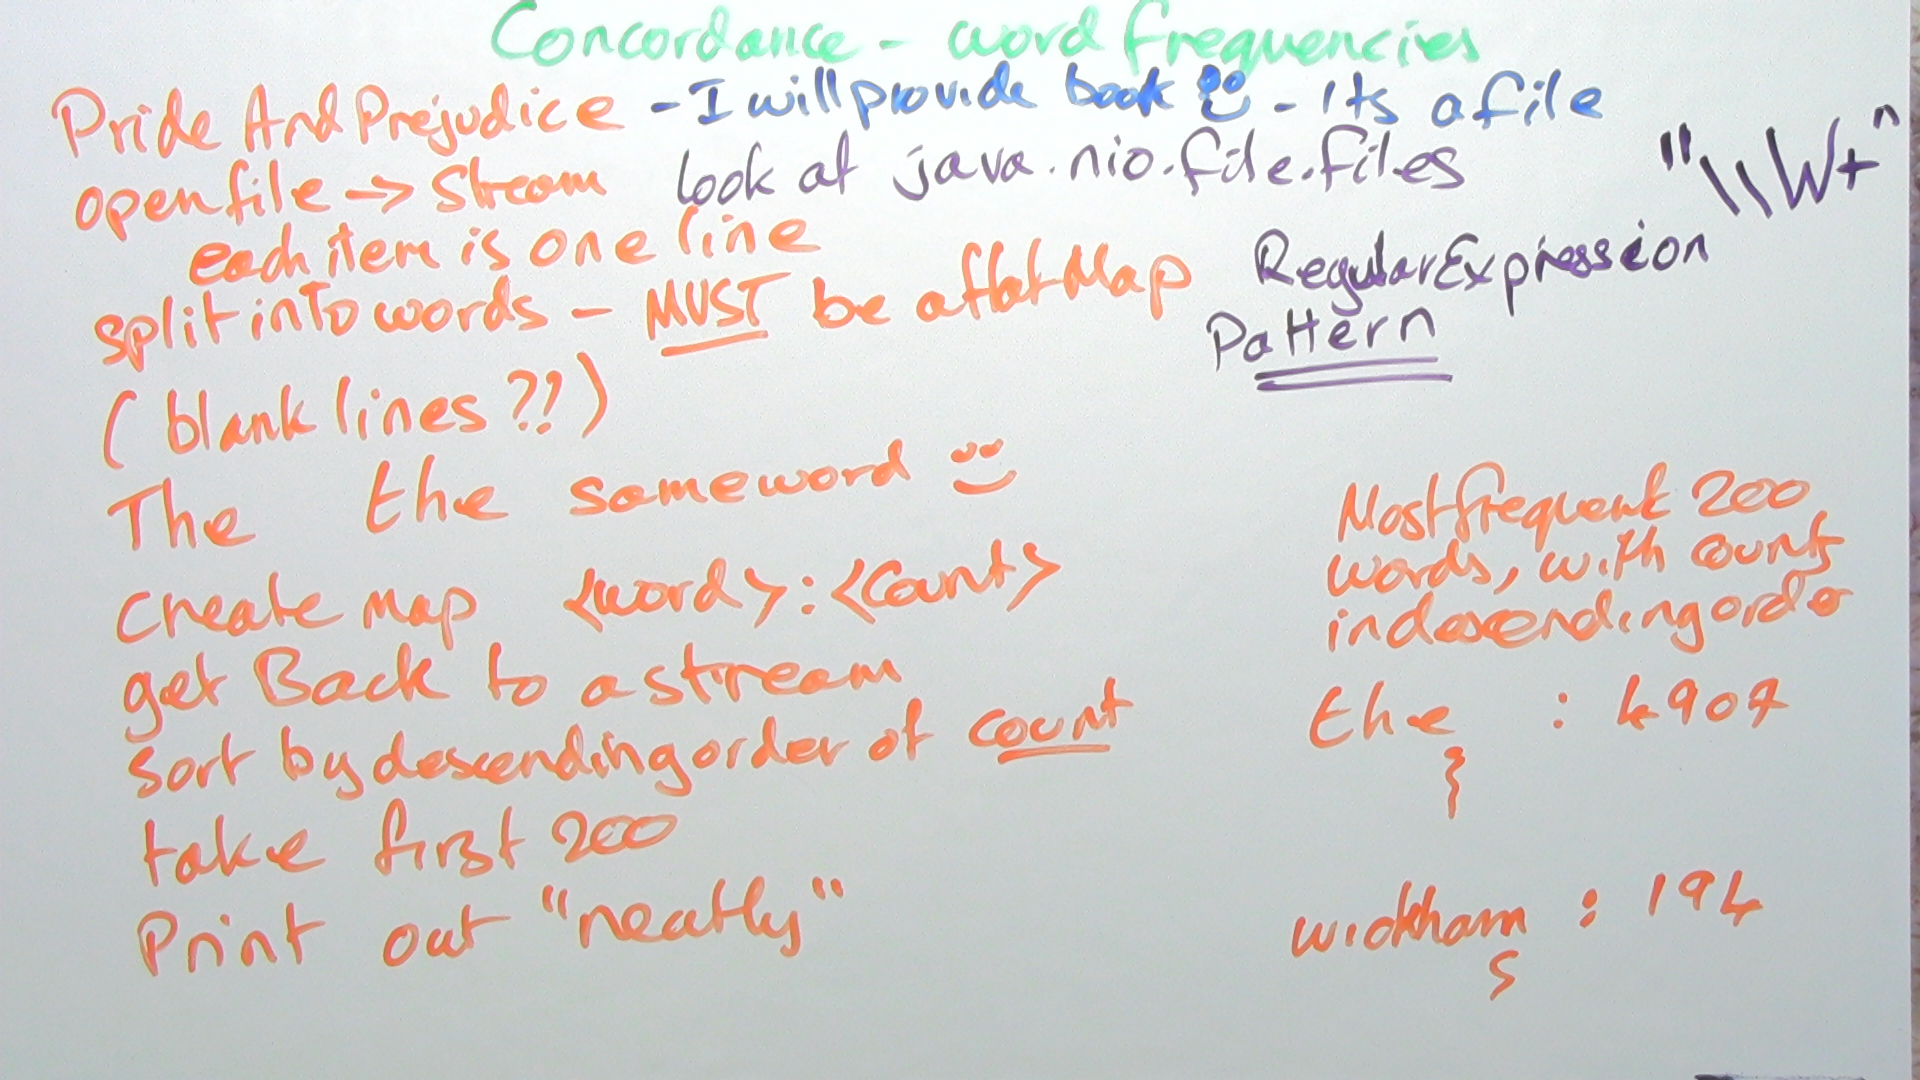 Concordance - word frequencies
Pride And Prejudice - I will provide book - Its a file
open file -> Stream look at java.nio.file.files
"\\W+"
each item is one line
split into words - MUST be a flatMap
Regular Expression
Pattern
(blank lines ?!)
The the same word
Create Map <word>:<Count>
get Back to a stream
Sort by descending order of count
take first 200
Print out "neatly"
Most frequent 200
words, with counts
in descending order
the : 4907
wickham : 194